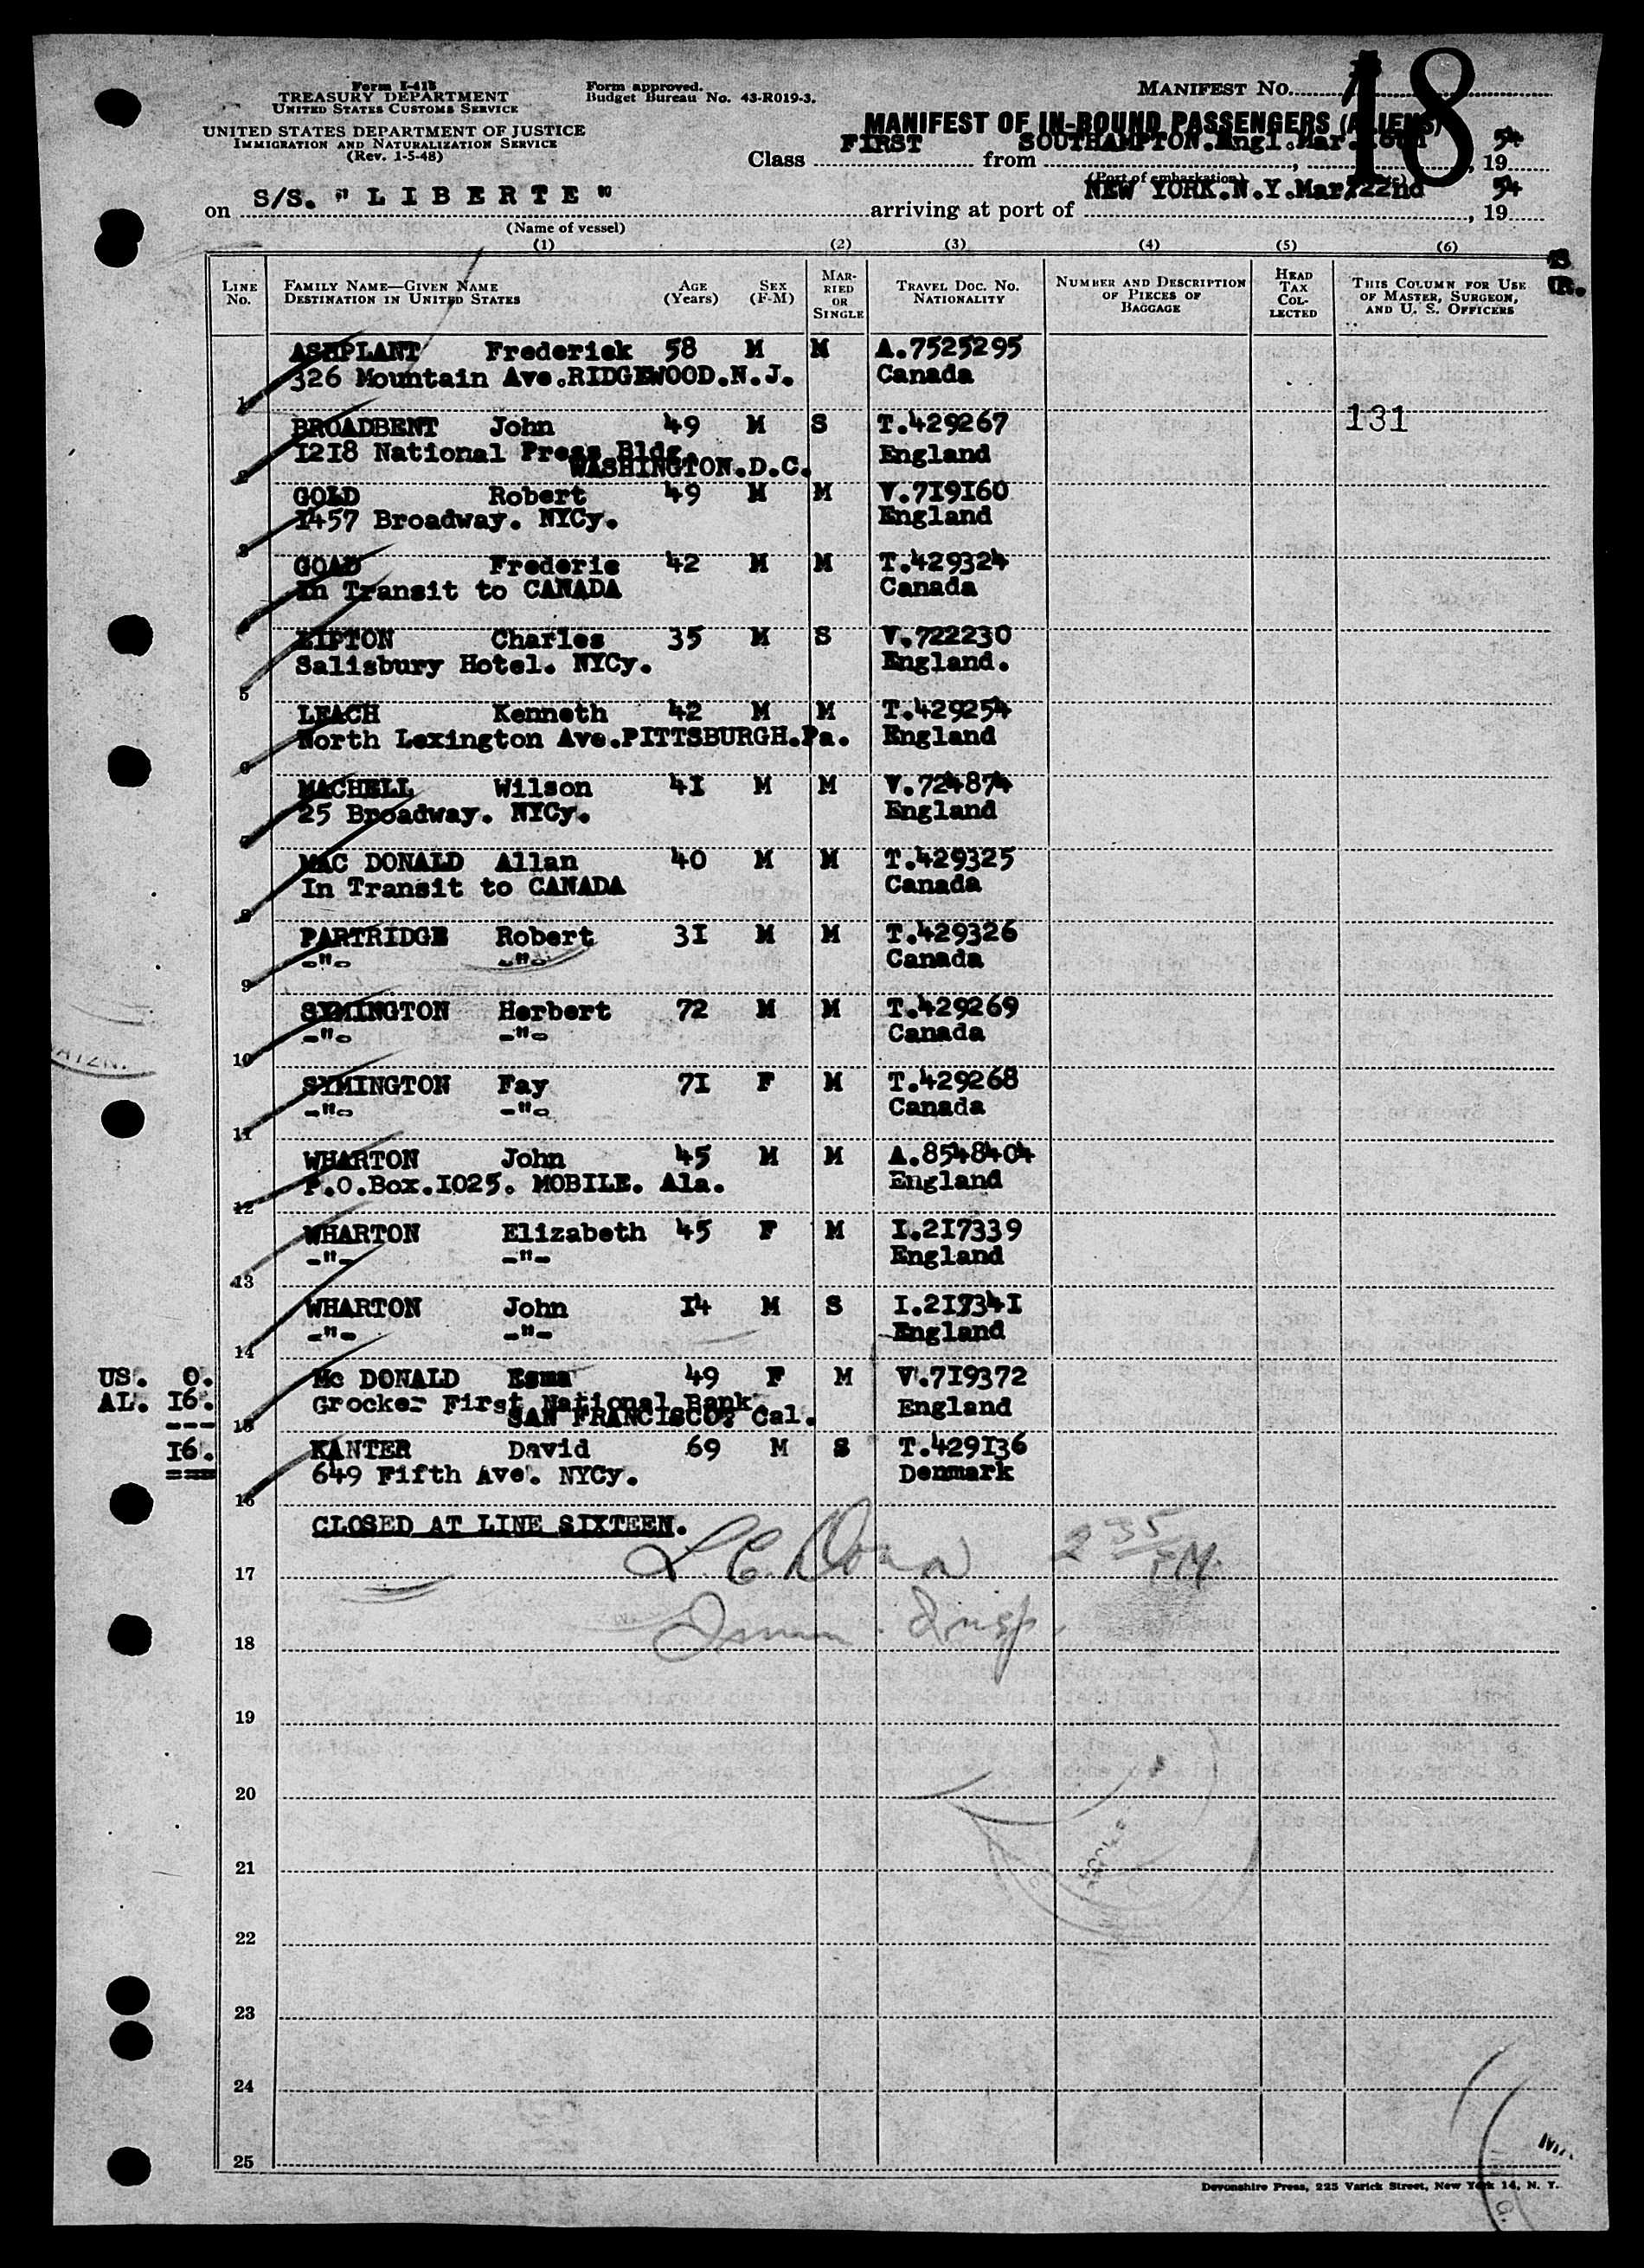 Form I-418
TREASURY DEPARTMENT
UNITED STATES CUSTOMS SERVICE
UNITED STATES DEPARTMENT OF JUSTICE
IMMIGRATION AND NATURALIZATION SERVICE
(Rev. 1-5-48)
Form approved.
Budget Bureau No. 43-R019-3.
MANIFEST NO. 18
MANIFEST OF IN-BOUND PASSENGERS (ALIENS)
Class FIRST from SOUTHAMPTON.Engl.Mar. , 19 54
(Port of embarkation)
on S/S. "LIBERTE" arriving at port of NEW YORK.N.Y.Mar.22nd , 19 54
(Name of vessel)
(1) (2) (3) (4) (5) (6)
LINE No. FAMILY NAME—GIVEN NAME DESTINATION IN UNITED STATES AGE (Years) SEX (F-M) MARRIED OR SINGLE TRAVEL DOC. NO. NATIONALITY NUMBER AND DESCRIPTION OF PIECES OF BAGGAGE HEAD TAX COLLECTED THIS COLUMN FOR USE OF MASTER, SURGEON, AND U. S. OFFICERS
ASHPLANT Frederick 58 M M A.7525295
326 Mountain Ave.RIDGEWOOD.N.J. Canada
1
BROADBENT John 49 M S T.429267 131
1218 National Press Bldg. England
WASHINGTON.D.C.
2
GOLD Robert 49 M M V.719160
1457 Broadway. NYCy. England
3
GOAD Frederic 42 M M T.429324
In Transit to CANADA Canada
4
LIPTON Charles 35 M S V.722230
Salisbury Hotel. NYCy. England.
5
LEACH Kenneth 42 M M T.429254
North Lexington Ave.PITTSBURGH.Pa. England
6
MACHELL Wilson 41 M M V.724874
25 Broadway. NYCy. England
7
MAC DONALD Allan 40 M M T.429325
In Transit to CANADA Canada
8
PARTRIDGE Robert 31 M M T.429326
-"- -"- Canada
9
SYMINGTON Herbert 72 M M T.429269
-"- -"- Canada
10
SYMINGTON Fay 71 F M T.429268
-"- -"- Canada
11
WHARTON John 45 M M A.8548404
P.O.Box.1025. MOBILE. Ala. England
12
WHARTON Elizabeth 45 F M I.217339
-"- -"- England
13
WHARTON John 14 M S I.217341
-"- -"- England
14
US. 0. Mc DONALD Esma 49 F M V.719372
AL. 16. Crocker First National Bank. England
SAN FRANCISCO. Cal.
15
16. KANTER David 69 M S T.429136
649 Fifth Ave. NYCy. Denmark
16
CLOSED AT LINE SIXTEEN.
2 35 PM.
17
Imm. Insp.
18
19
20
21
22
23
24
25
Devonshire Press, 225 Varick Street, New York 14, N. Y.